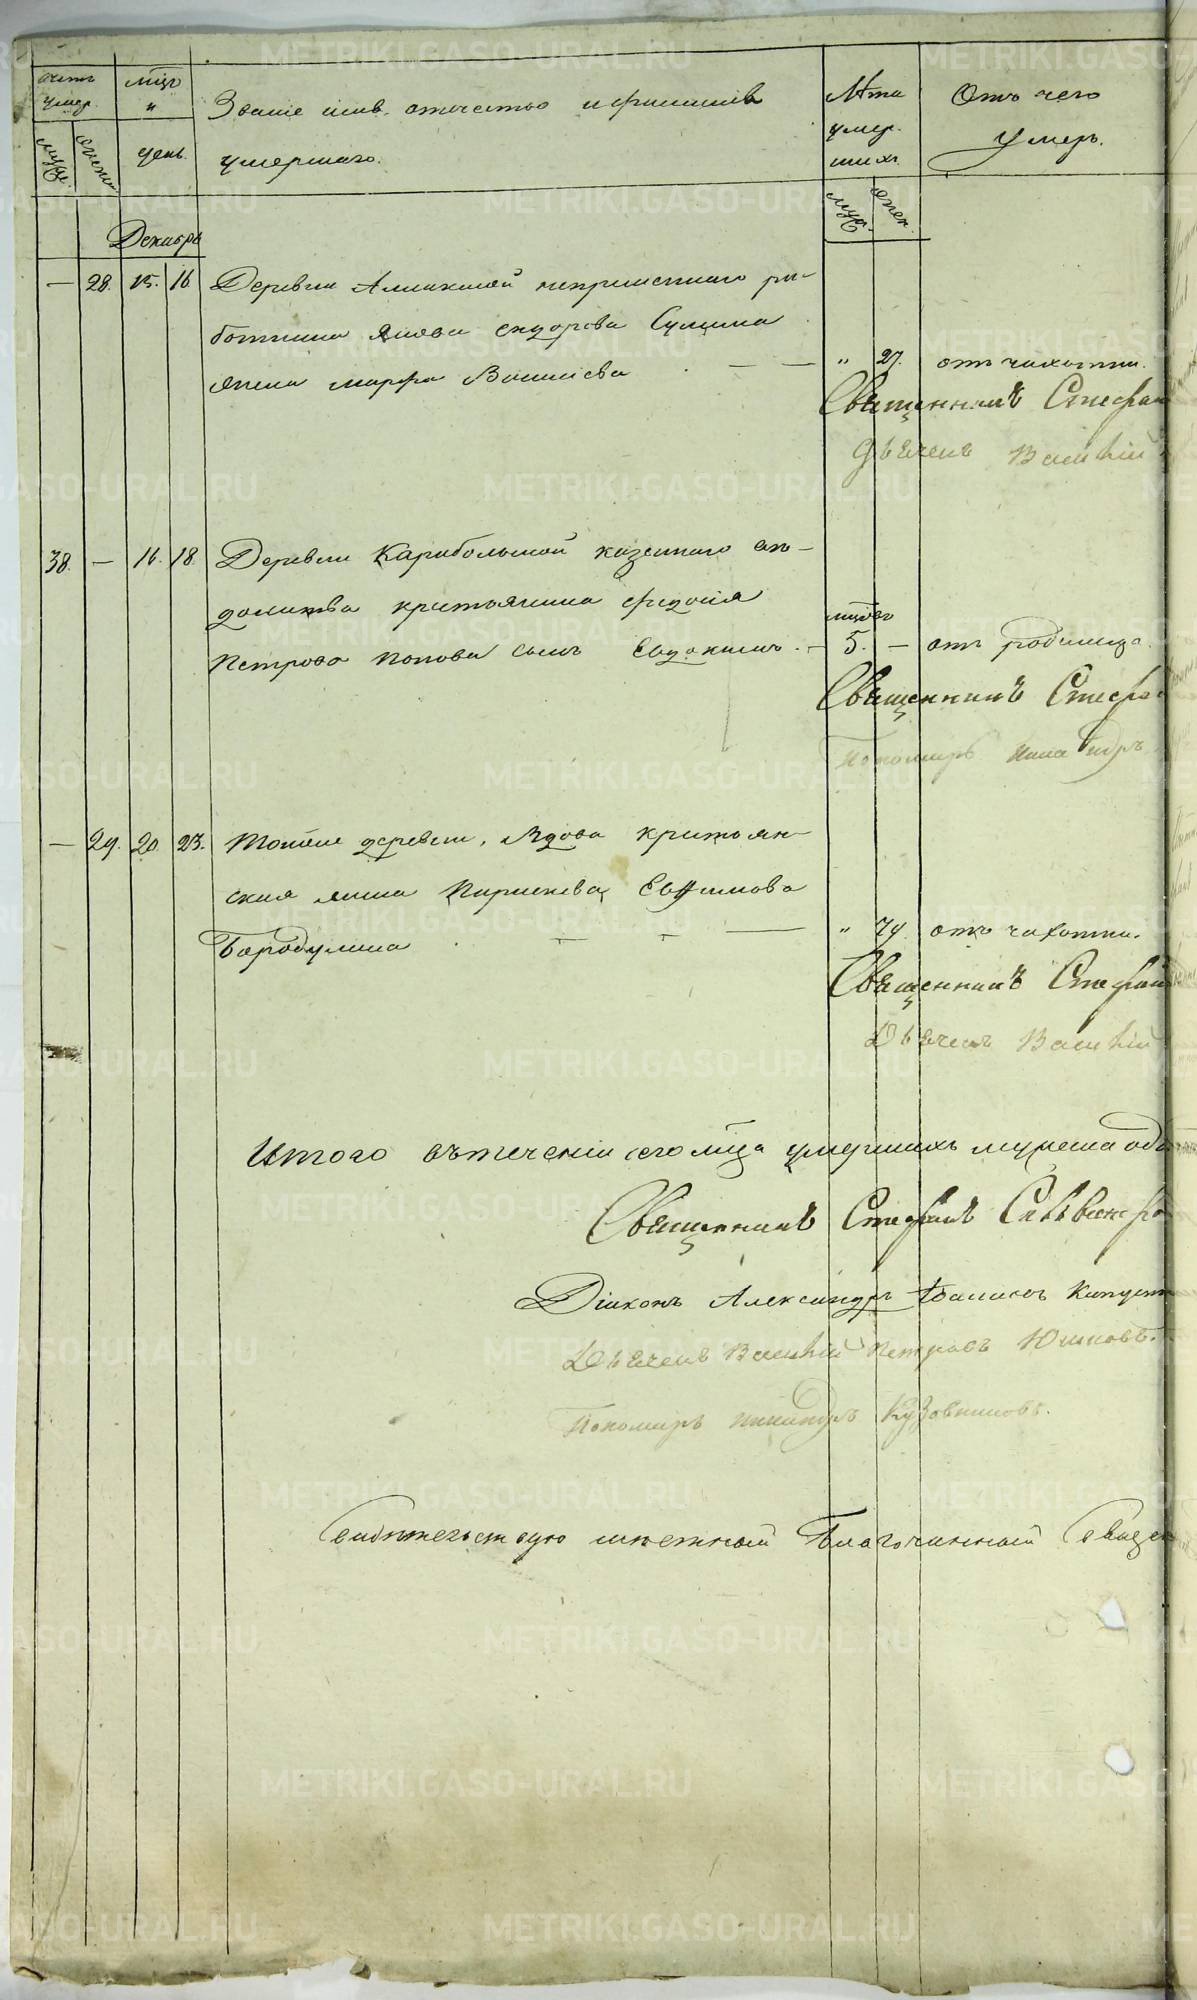 счетъ умер. мцъ и день Званіе имя отечество и фамилія умершаго. Лѣта умершихъ Отъ чего умеръ.
муж. женск. муж. жен.
Декабрь
— 28. 15. 16 Деревни непременнаго ра-
ботника Якова Сулина
жена Марфа Васильева — — „ 27. отъ чахотки.
Священникъ Стефан
Дьячекъ Василій
38. — 16. 18. Деревни Карабольской казеннаго вѣ-
домства крестьянина
Петрова Попова сынъ Евдокимъ. — мцовъ 5. — отъ родимца.
Священникъ Стефа
Пономарь
— 29. 20. 23. Тойже деревни, вдова крестьян-
ская жена Евфимова
Бородулина — — — „ 79. отъ чахотки.
Священникъ Стефан
Дьячекъ Василій
Итого въ теченіи сего мца умершихъ мужеска
Священникъ Стефанъ
Діаконъ Александръ
Дьячекъ Василій Петровъ Юшковъ.
Пономарь Никандръ Кузовниковъ.
Свидѣтельствую мѣстный Благочинный Священ
METRIKI.GASO-URAL.RU